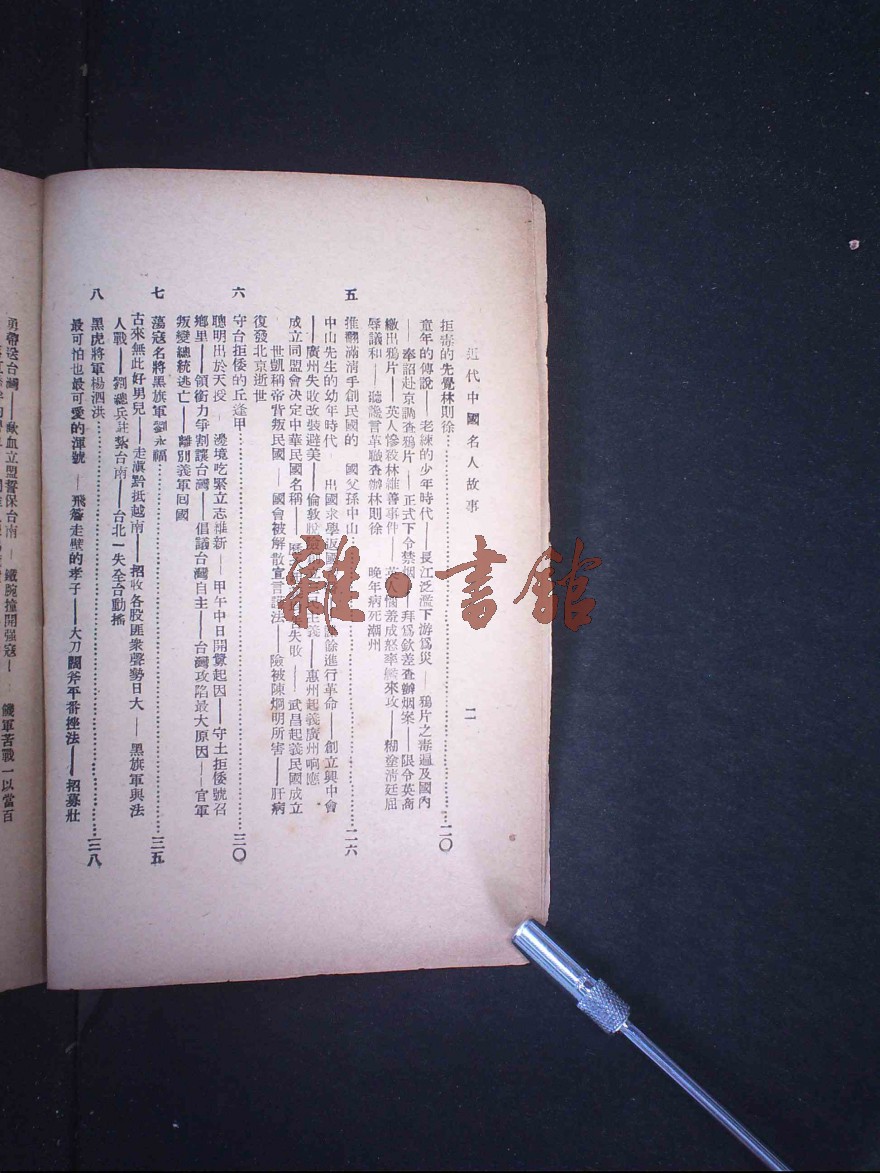 近代中國名人故事
二
拒毒的先覺林則徐……二〇
童年的傳說——老練的少年時代——長江泛濫下游爲災——鴉片之毒遍及國內
——奉詔赴京調查鴉片——正式下令禁烟——拜爲欽差查辦烟案——限令英商
繳出鴉片——英人慘殺林維善事件——英 惱羞成怒率 來攻——糊塗清廷屈
辱議和——聽讒言革職查辦林則徐 晚年病死潮州
五 推翻滿清手創民國的 國父孫中山……二六
中山先生的幼年時代 出國求學返國 餘進行革命——創立興中會
——廣州失收改裝避美——倫敦 主義——惠州起義廣州响應
成立同盟會決定中華民國名稱—— 失收——武昌起義民國成立
世凱稱帝背叛民國——國會被解散宣言護法——險被陳烱明所害——肝病
復發北京逝世
六 守台拒倭的丘逢甲……三〇
聰明出於天授 邊境吃緊立志維新——甲午中日開釁起因——守土拒倭號召
鄉里——領銜力爭割讓台灣——倡議台灣自主——台灣攻陷最大原因——官軍
叛變總統逃亡——離別義軍囘國
七 蕩寇名將黑旗軍劉永福……三五
古來無此好男兒——走滇黔抵越南——招收各股匪衆聲勢日大——黑旗軍與法
人戰——劉總兵駐紮台南——台北一失全台動搖
八 黑虎將軍楊泗洪……三八
最可怕也最可愛的渾號——飛簷走壁的孝子——大刀闊斧平番挫法——招募壯
勇帶送台灣——歃血立盟誓保台南——鐵腕撞開强寇— 饑軍苦戰一以當百
雜·書館